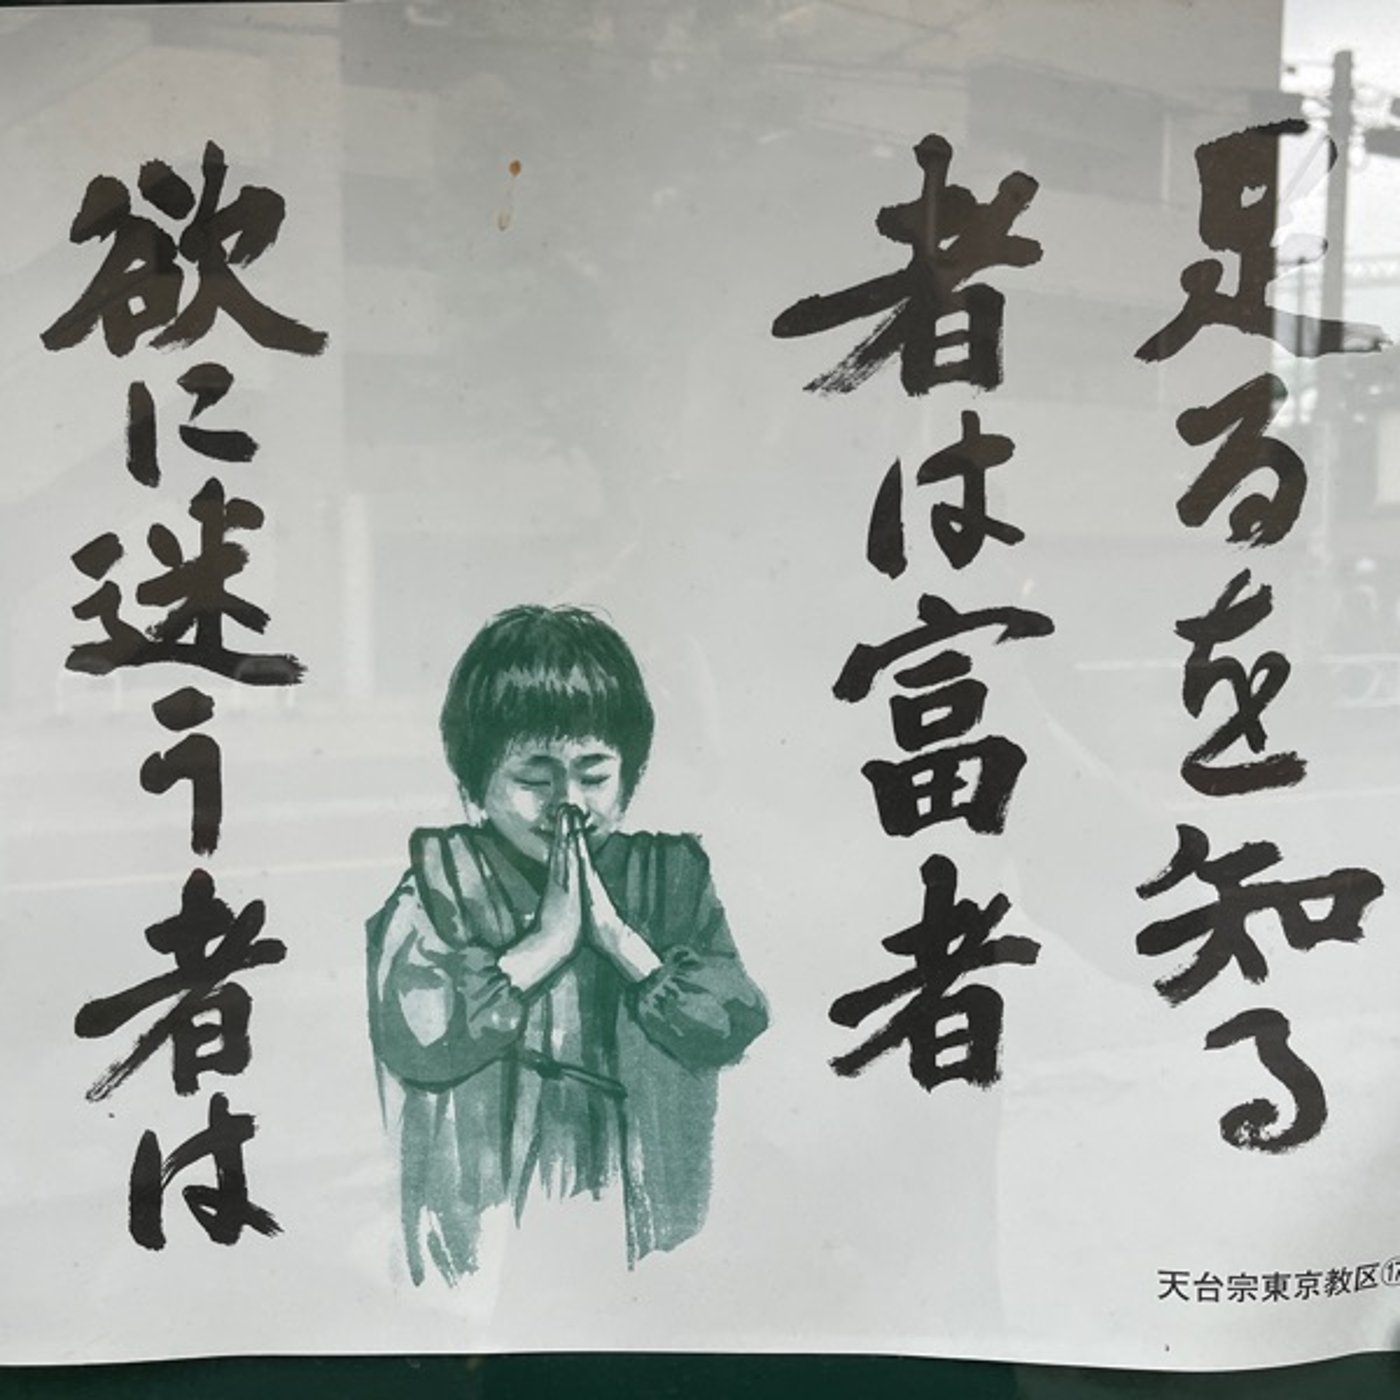 足るを知る
者は富者
欲に迷う者は
天台宗東京教区⑰